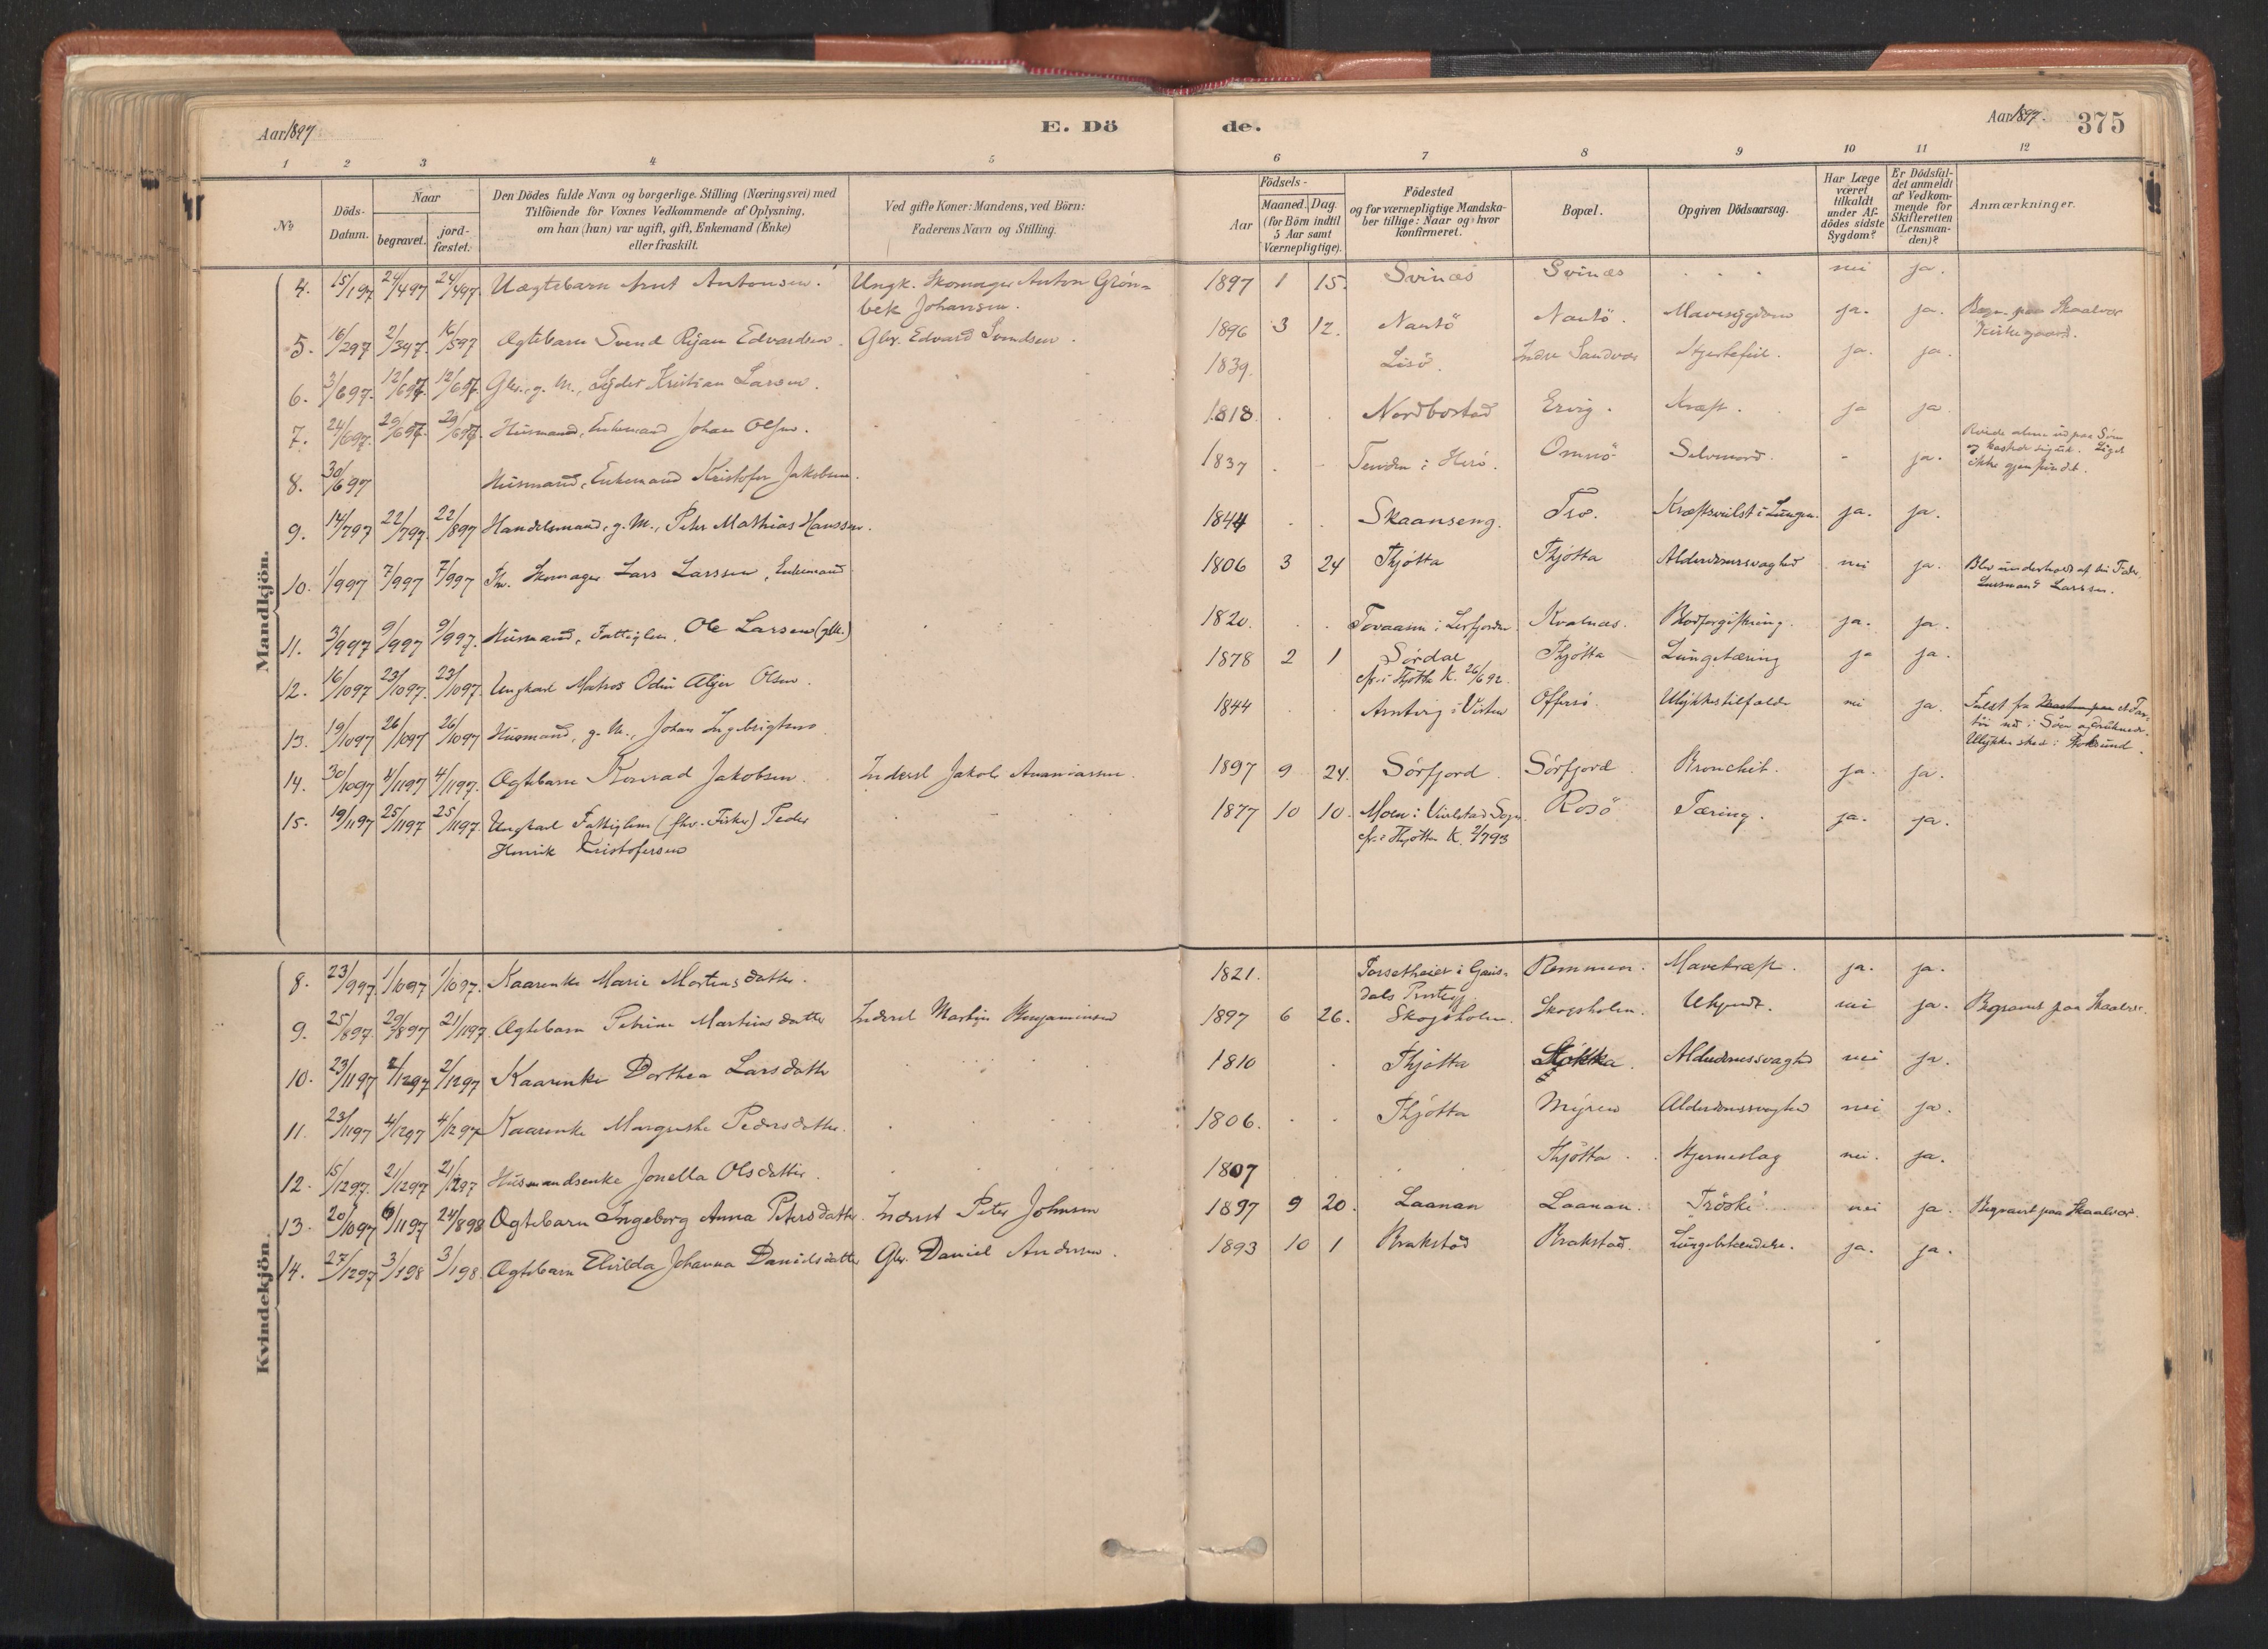 Aar 1897
E. Dö
de.
Aar 1897.
375
1 2 3 4 5 6 7 8 9 10 11 12
№
Döds-Datum.
Naar
begravet. jord-fæstet.
Den Dödes fulde Navn og borgerlige Stilling (Næringsvei) med
Tilföiende for Voxnes Vedkommende af Oplysning,
om han (hun) var ugift, gift, Enkemand (Enke)
eller fraskilt.
Ved gifte Koner: Mandens, ved Börn:
Faderens Navn og Stilling.
Födsels-
Aar Maaned. Dag.
(for Börn indtil
5 Aar samt
Værnepligtige).
Födested
og for værnepligtige Mandska-
ber tillige: Naar og hvor
konfirmeret.
Bopæl.
Opgiven Dödsaarsag.
Har Læge
været
tilkaldt
under Af-
dödes sidste
Sygdom?
Er Dödsfal-
det anmeldt
af Vedkom-
mende for
Skifteretten
(Lensman-
den)?
Anmærkninger.
Mandkjön.
4. 15/1 97 24/4 97 24/4 97. Uægtebarn Arnt Antonsen. Ungk. Skomager Anton Grön- 1897 1 15. Svinæs Svinæs . . . nei ja.
bek Johansen.
5. 16/2 97 2/3 97. 16/5 97 Ægtebarn Svend Edvardsen. Gbr. Edvard Svendsen. 1896 3 12. Navesygdom ja. ja. Begr. paa Skaalvær
Kirkegaard.
6. 3/6 97. 12/6 97. 12/6 97. Gbr., g. M., Kristian Larsen. 1839. Indre Sandvær Hjertefeil. ja. ja.
7. 24/6 97. 29/6 97. 29/6 97. Husmand, Enkemand Johan Olsen. 1818 . . Nordbostad Ervig. Kræft. ja ja
8. 30/6 97 Husmand, Enkemand Kristofer Jakobsen. 1837 . . i Herö. Omnö Selvmord. - ja. Roede alene ud paa Söen
og kastede sig ud. Liget
ikke gjenfundet.
9. 14/7 97 22/7 97. 22/8 97 Handelsmand, g. M., Peter Mathias Hanssen. 1844 . . Skaanseng. Tro. Kræftsvulst i Lungen. ja. ja.
10. 1/9 97 7/9 97 7/9 97 Fhv. Skomager Lars Larssen, Enkemand 1806 3 24 Thjötta Thjötta Alderdomssvaghed nei ja. Blev underholdt af
Lensmand Larssen.
11. 3/9 97 9/9 97 9/9 97. Husmand, Fattiglem, Ole Larsen (g. M.) 1820. . . Tovaasen i Leirfjorden. Kvalnæs. Blodforgiftning. ja. ja.
12. 16/10 97 23/10 97. 23/10 97. Ungkarl Matros Odin Olsen. 1878 2 1 Sördal Thjötta Lungetæring ja ja.
cfr. i Thjötta K. 26/6 92.
13. 19/10 97 26/10 97 26/10 97 Husmand, g. M., Johan Ingebrigtsen 1844 i Visten Offersö. Ulykkestilfælde nei ja. Faldt fra et Far-
töi ud i Söen og druknede.
Ulykken skede i Stoksund.
14. 30/10 97 4/11 97 4/11 97. Ægtebarn Konrad Jakobsen. Inderst Jakob Ananiassen. 1897 9 24. Sörfjord Sörfjord Bronchit. ja. ja.
15. 19/11 97 25/11 97 25/11 97. Ungkarl Fattiglem (fhv. Fisker) Peder 1877 10 10. Moen i Vevelstad Sogn. Rosö Tæring. ja. ja.
Henrik Kristofersen cfr. i Thjötta K. 2/7 93
Kvindekjön.
8. 23/9 97. 1/10 97 1/10 97. Kaarenke Marie Mortensdatter. 1821. i Gaus- Remmen. Mavekræft. ja. ja.
dals Prstgj.
9. 25/8 97. 29/8 97 21/11 97 Ægtebarn Petrine Martinsdatter Inderst Martin Benjaminsen 1897 6 26. Skogsholm. Skogsholm. Ukjendt. nei ja. Begravet paa Skaalvær.
10. 23/11 97 2/12 97 2/12 97 Kaarenke Dorthea Larsdatter 1810 . Thjötta Stokka. Alderdomssvaghed nei ja.
11. 23/11 97 4/12 97 4/12 97 Kaarenke Margrethe Pedersdatter. 1806. . . Thjötta Myren Alderdomssvaghed nei ja.
12. 15/12 97. 21/12 97 21/12 97 Husmandsenke Jonella Olsdatter. 1807 . Thjötta Hjerneslag nei. ja.
13. 20/10 97 6/11 97 24/8 98 Ægtebarn Ingeborg Anna Petersdatter. Inderst Peter Johnsen 1897 9 20. Laanan Laanan. Tröske nei ja. Begravet paa Skaalvær.
14. 27/12 97 3/1 98 3/1 98. Ægtebarn Elvilda Johanna Danielsdatter Gbr. Daniel Andersen. 1893 10 1 Brakstad Brakstad. Lungebetændelse. ja. ja.